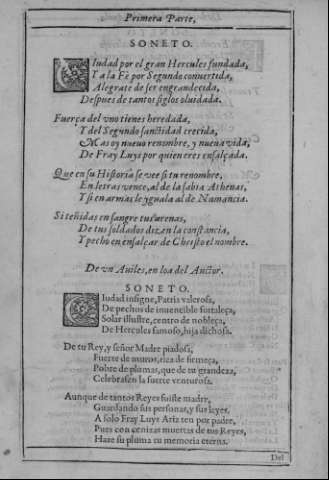 Primera Parte,
SONETO.
Ciudad por el gran Hercules fundada,
Y a la Fè por Segundo conuertida,
Alegrate de ser engrandecida,
Despues de tantos siglos oluidada.
Fuerça del vno tienes heredada,
Y del Segundo sanctidad crecida,
Mas oy nueuo renombre, y nueua vida,
De Fray Luys por quien eres ensalçada.
Que en su Historia se vee si tu renombre,
En letras vence, al de la sabia Athenas,
Y si en armas le yguala al de Numancia.
Si teñidas en sangre tus arenas,
De tus soldados dizen la constancia,
Y pecho en ensalçar de Christo el nombre.
De vn Auiles, en loa del Auctor.
SONETO.
Ciudad insigne, Patria valerosa,
De pechos de inuencible fortaleça,
Solar illustre, centro de nobleça,
De Hercules famoso, hija dichosa.
De tu Rey, y señor Madre piadosa,
Fuerte de muros, rica de firmeça,
Pobre de plumas, que de tu grandeza,
Celebrassen la suerte venturosa.
Aunque de tantos Reyes fuiste madre,
Guardando sus personas, y sus leyes,
A solo Fray Luys Ariz ten por padre,
Pues con cenizas muertas de tus Reyes,
Haze su pluma tu memoria eterna.
Del